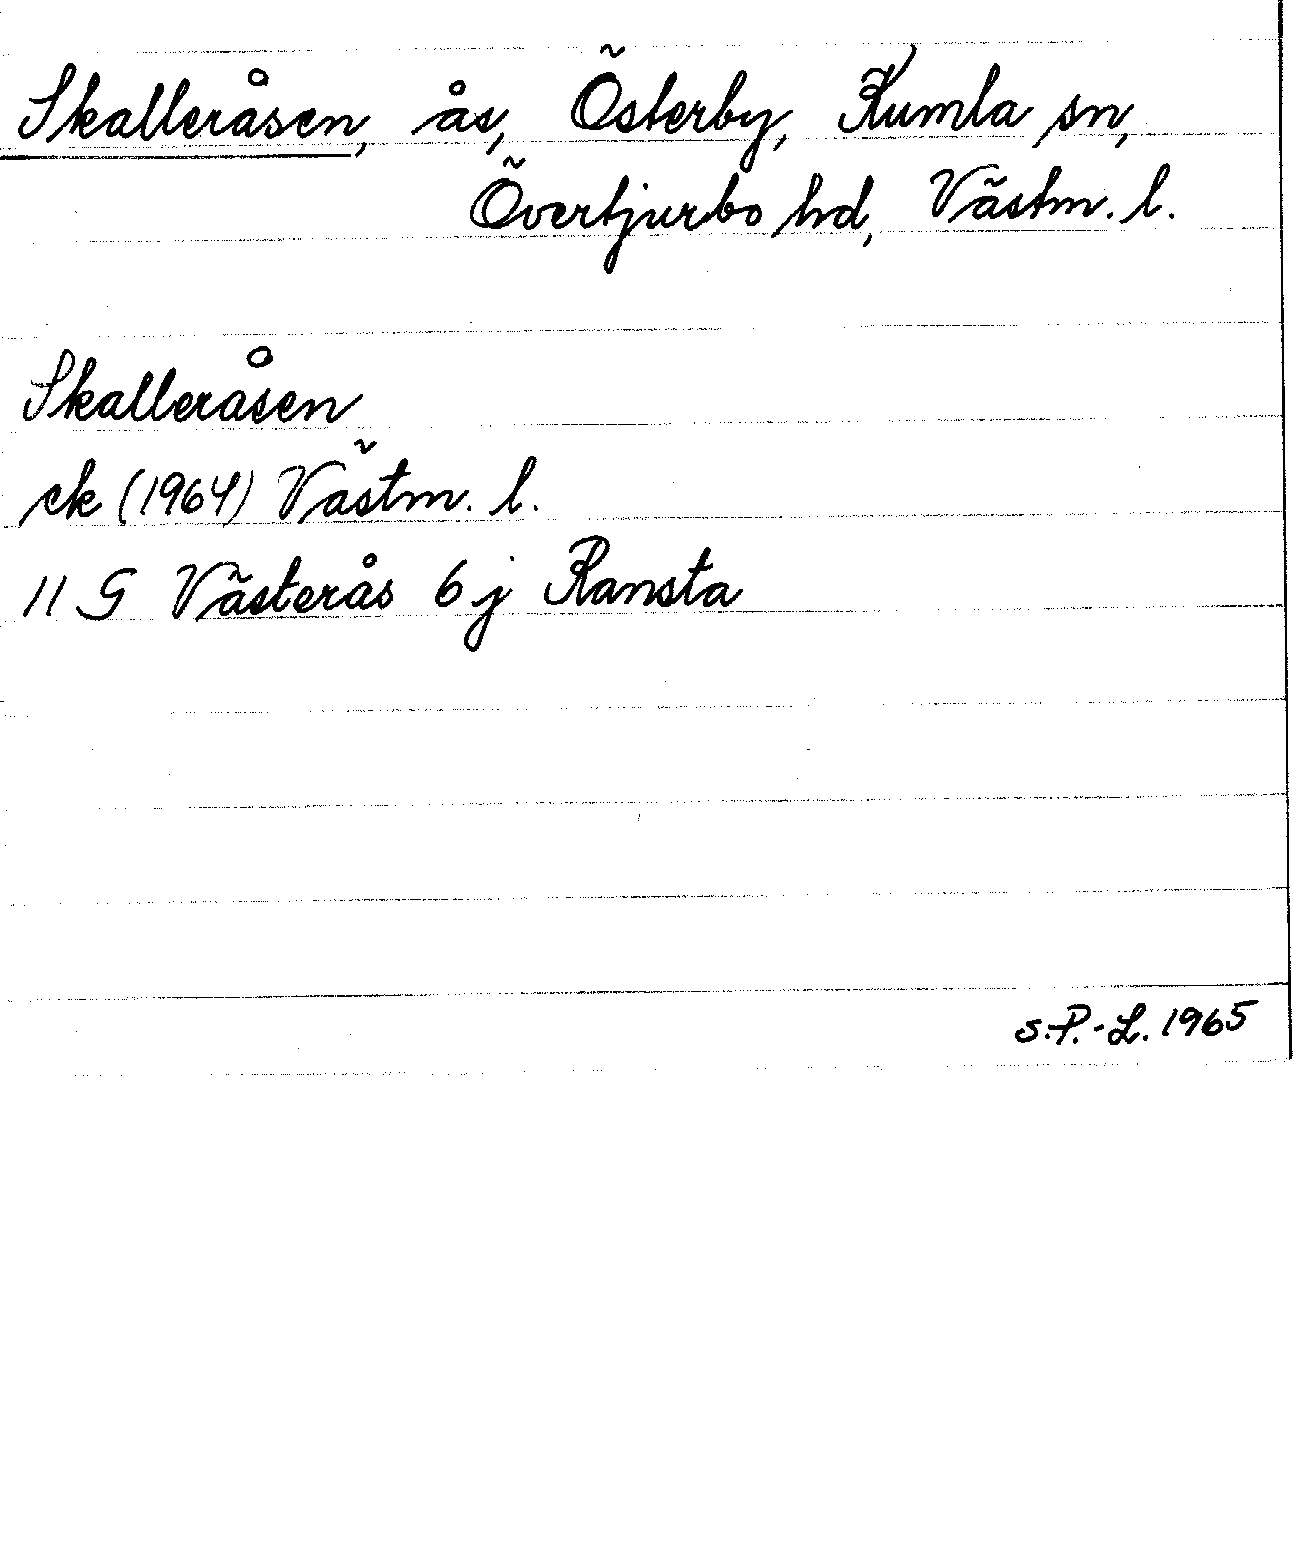 Skalleråsen, ås, Österby, Kumla sn,
Övertjurbo hd, Västm. l.
Skalleråsen
ek (1964) Västm. l.
11 G Västerås 6 j Ransta
S.P.-L. 1965